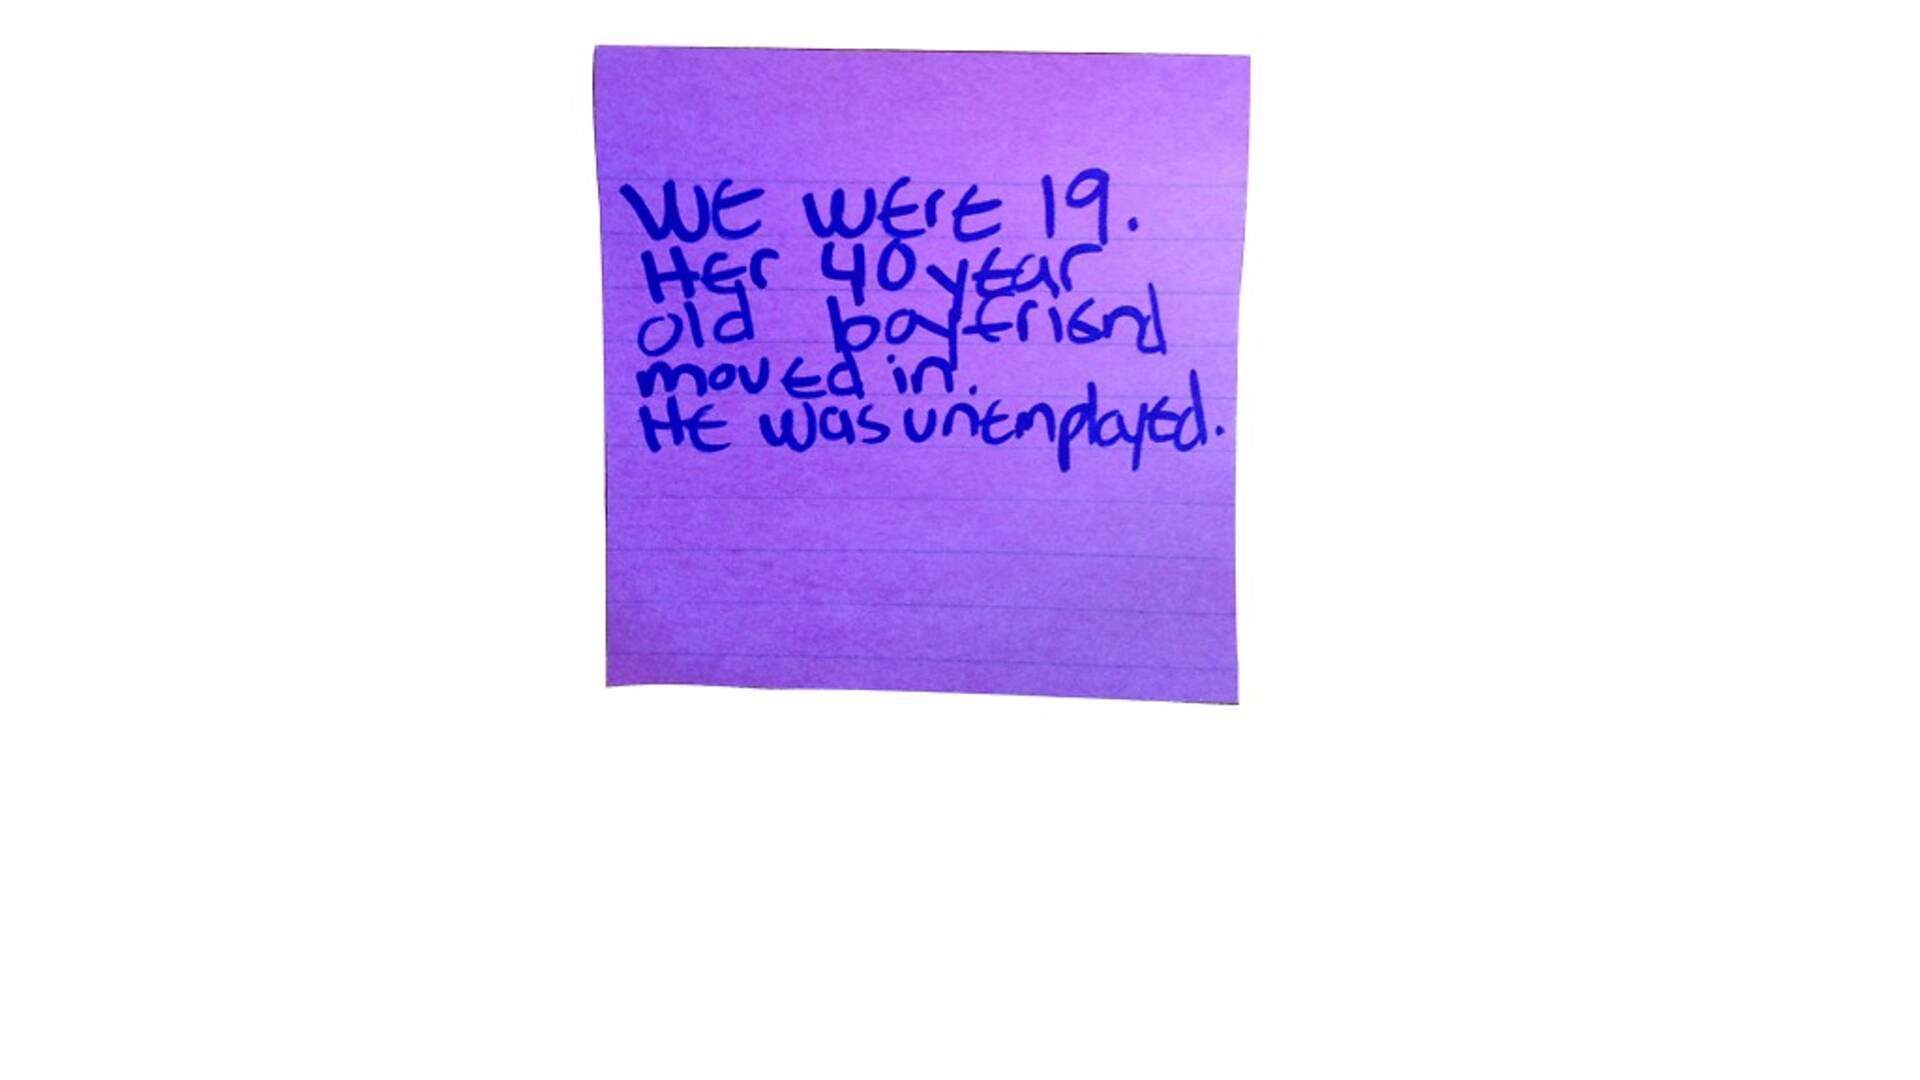 WE WErE 19.
HEr 40 year
old boyfriend
movEd in.
HE was unEmployed.